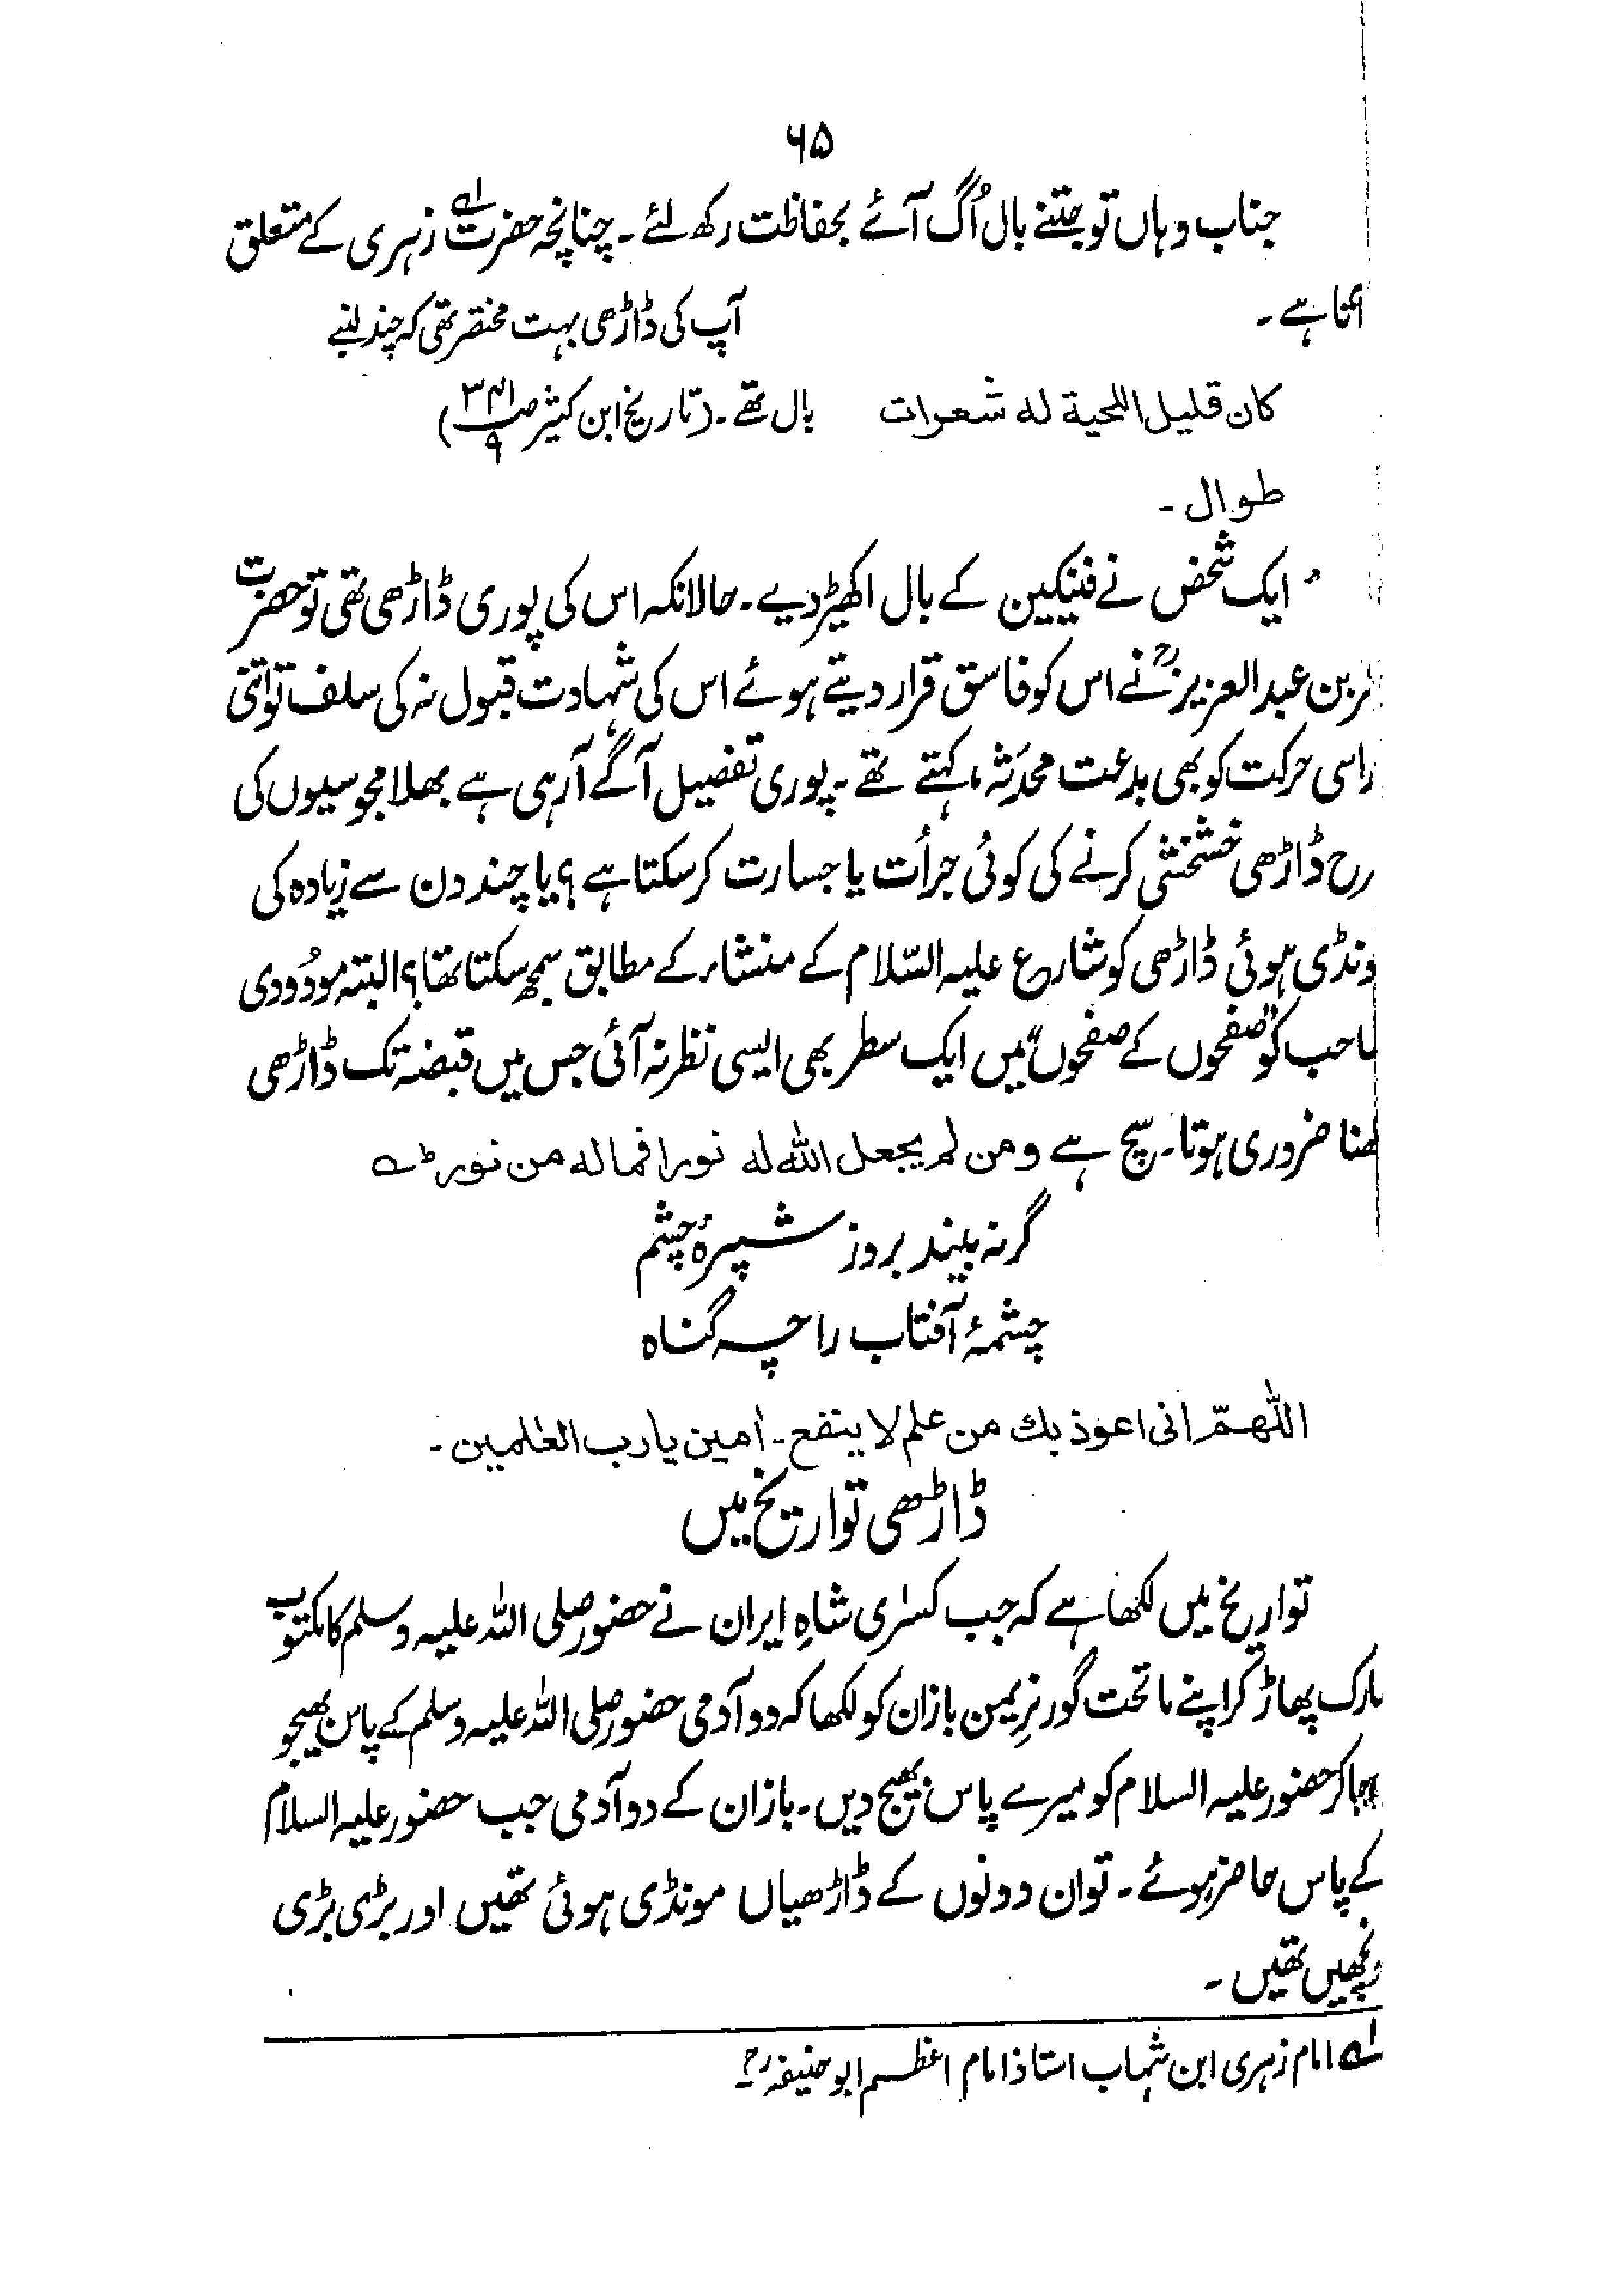 ۶۵
جناب وہاں تو جتنے بال اُگ آئے بحفاظت رکھ لئے۔ چنانچہ حضرت لہ زہری کے متعلق
آتا ہے۔
آپ کی ڈاڑھی بہت مختصر تھی کہ چند لمبے
کان قلیل اللحیة له شعرات
بال تھے۔ (تاریخ ابن کثیر ص ۳۴۱ / ۹)
طوال۔
" ایک شخص نے فنیکین کے بال اکھیڑ دیے۔ حالانکہ اس کی پوری ڈاڑھی تھی تو حضرت
بن عبدالعزیزؒ نے اس کو فاسق قرار دیتے ہوئے اس کی شہادت قبول نہ کی سلف تو اتنی
اسی حرکت کو بھی بدعت محدَثہ، کہتے تھے۔ پوری تفصیل آگے آرہی ہے بھلا مجوسیوں کی
رح ڈاڑھی خشخشی کرنے کی کوئی جرأت یا جسارت کرسکتا ہے؟ یا چند دن سے زیادہ کی
ونڈی ہوئی ڈاڑھی کو شارع علیہ السّلام کے منشاء کے مطابق سمجھ سکتا تھا؟ البتہ مودُودی
احب کو "صفحوں کے صفحوں" میں ایک سطر بھی ایسی نظر نہ آئی جس میں قبضہ تک ڈاڑھی
ھنا ضروری ہوتا۔ سچ ہے ومن لم یجعل اللہ له نورا فماله من نور ؎
گر نہ بیند بروز شپرہ چشم
چشمۂ آفتاب را چہ گناہ
اللّٰھمّ انی اعوذ بك من علم لا ینفع۔ اٰمین یا رب العٰلمین۔
ڈاڑھی تواریخ میں
تواریخ میں لکھا ہے کہ جب کسرٰی شاہِ ایران نے حضور صلی اللہ علیہ وسلم کا مکتوب
بارک پھاڑ کر اپنے ماتحت گورنر یمن بازان کو لکھا کہ دو آدمی حضور صلی اللہ علیہ وسلم کے پاس بھیجو
جاکر حضور علیہ السلام کو میرے پاس بھیج دیں۔ بازان کے دو آدمی جب حضور علیہ السلام
کے پاس حاضر ہوئے۔ تو ان دونوں کے ڈاڑھیاں مونڈی ہوئی تھیں اور بڑی بڑی
ونچھیں تھیں۔
لہ امام زہری ابن شہاب استاذ امام اعظم ابو حنیفہؒ